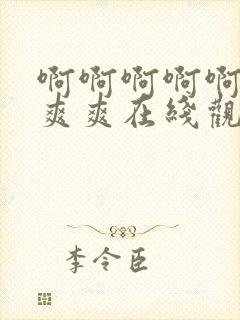 啊啊啊啊啊
爽爽在綫觀
李令臣